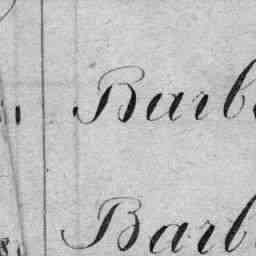 Barb
Barb